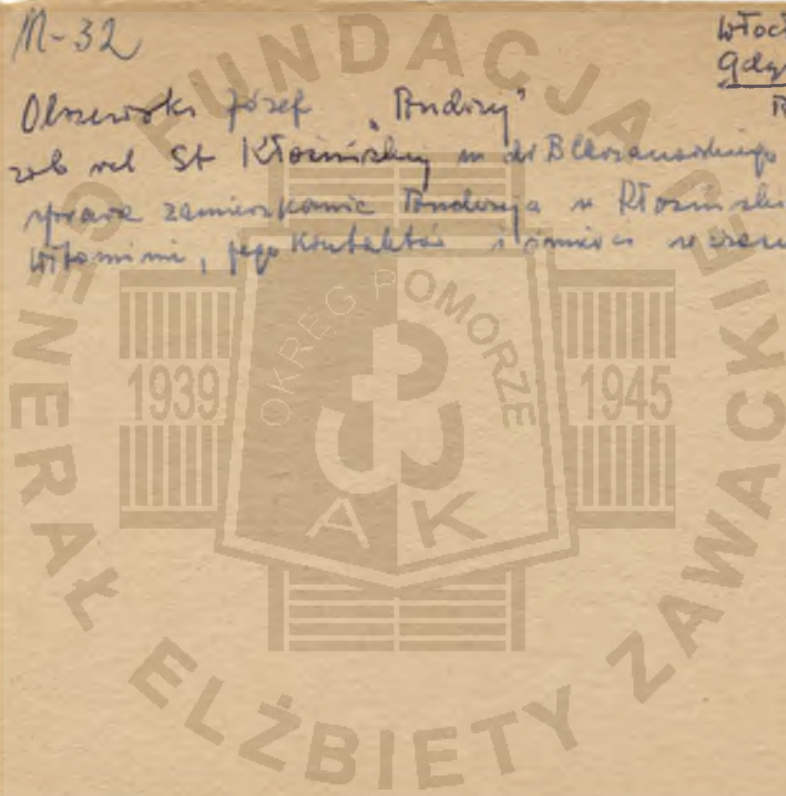 M-32
Włoc
Gdy
Olszewski Józef „Andrzej”
zob rel St Kłosińskiej m
sprawa zamieszkania Andrzeja u Kłosińskie
Witominie, jego kontaktów i śmierci
FUNDACJA
GENERAŁ ELŻBIETY ZAWACKIEJ
OKRĘG POMORZE
1939
1945
AK